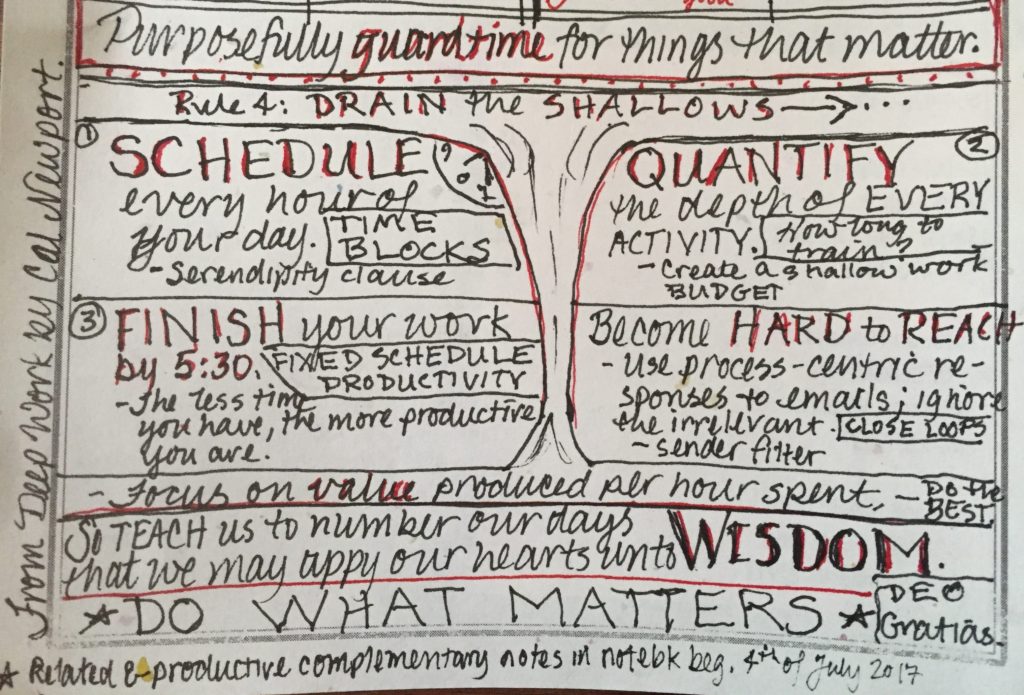 good
Purposefully guard time for things that matter.
Rule 4: DRAIN the SHALLOWS → ...
① SCHEDULE
every hour of
your day.
TIME
BLOCKS
- Serendipity clause
② QUANTIFY
the depth of EVERY
ACTIVITY.
How long to
train?
- Create a shallow work
BUDGET
③ FINISH your work
by 5:30.
FIXED SCHEDULE
PRODUCTIVITY
- The less time
you have, the more productive
you are.
Become HARD to REACH
- Use process-centric re-
sponses to emails; ignore
the irrelevant.
CLOSE LOOPS
- sender filter
- Focus on value produced per hour spent, -
DO the
BEST
So TEACH us to number our days
that we may appy our hearts unto WISDOM.
★ DO WHAT MATTERS ★
DEO
Gratias.
★ Related & productive complementary notes in notebk beg. 4th of July 2017
From Deep Work by Cal Newport.